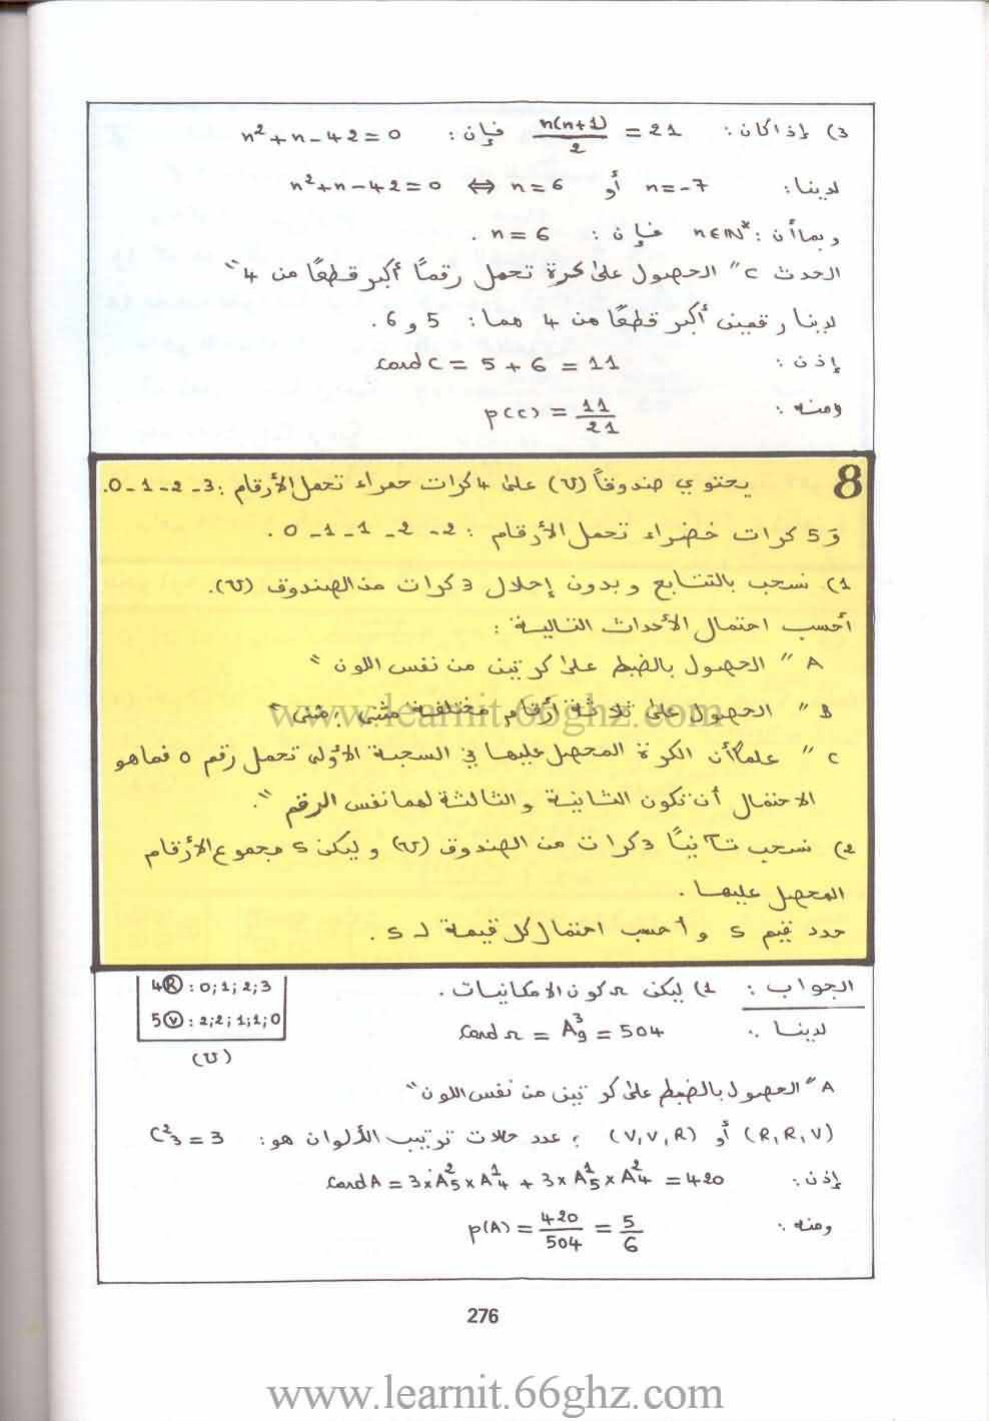 3) إذا كان : n(n+1)/2 = 21 فإن : n²+n-42=0
لدينا : n²+n-42=0 ⇔ n=6 أو n=-7
وبما أن : n∈ℕ* فإن : n=6 .
الحدث C "الحصول على كرة تحمل رقمًا أكبر قطعًا من 4"
لدينا رقمين أكبر قطعًا من 4 هما : 5 و 6.
إذن : card C = 5 + 6 = 11
ومنه : p(C) = 11/21
8 يحتوي صندوقاً (U) على 4 كرات حمراء تحمل الأرقام : 3-2-1-0.
و 5 كرات خضراء تحمل الأرقام : 2-2-1-1-0 .
1) نسحب بالتتابع وبدون إحلال 3 كرات من الصندوق (U).
أحسب احتمال الأحداث التالية :
A " الحصول بالضبط على كرتين من نفس اللون "
B " الحصول على ثلاثة أرقام مختلفة مثنى مثنى "
C " علماً أن الكرة المحصل عليها في السحبة الأولى تحمل رقم 0 فما هو
الاحتمال أن تكون الثانية والثالثة لهما نفس الرقم ".
2) نسحب تآنيًا 3 كرات من الصندوق (U) وليكن S مجموع الأرقام
المحصل عليها .
حدد قيم S وأحسب احتمال كل قيمة لـ S .
الجواب : 1) ليكن Ω كون الإمكانيات .
4Ⓡ : 0;1;2;3
5Ⓥ : 2;2;1;1;0
(U)
لدينا : card Ω = A³₉ = 504
A "الحصول بالضبط على كرتين من نفس اللون"
(R,R,V) أو (V,V,R) ; عدد حالات ترتيب الألوان هو : C²₃ = 3
إذن : card A = 3×A²₅×A¹₄ + 3×A¹₅×A²₄ = 420
ومنه : p(A) = 420/504 = 5/6
276
www.learnit.66ghz.com
www.learnit.66ghz.com